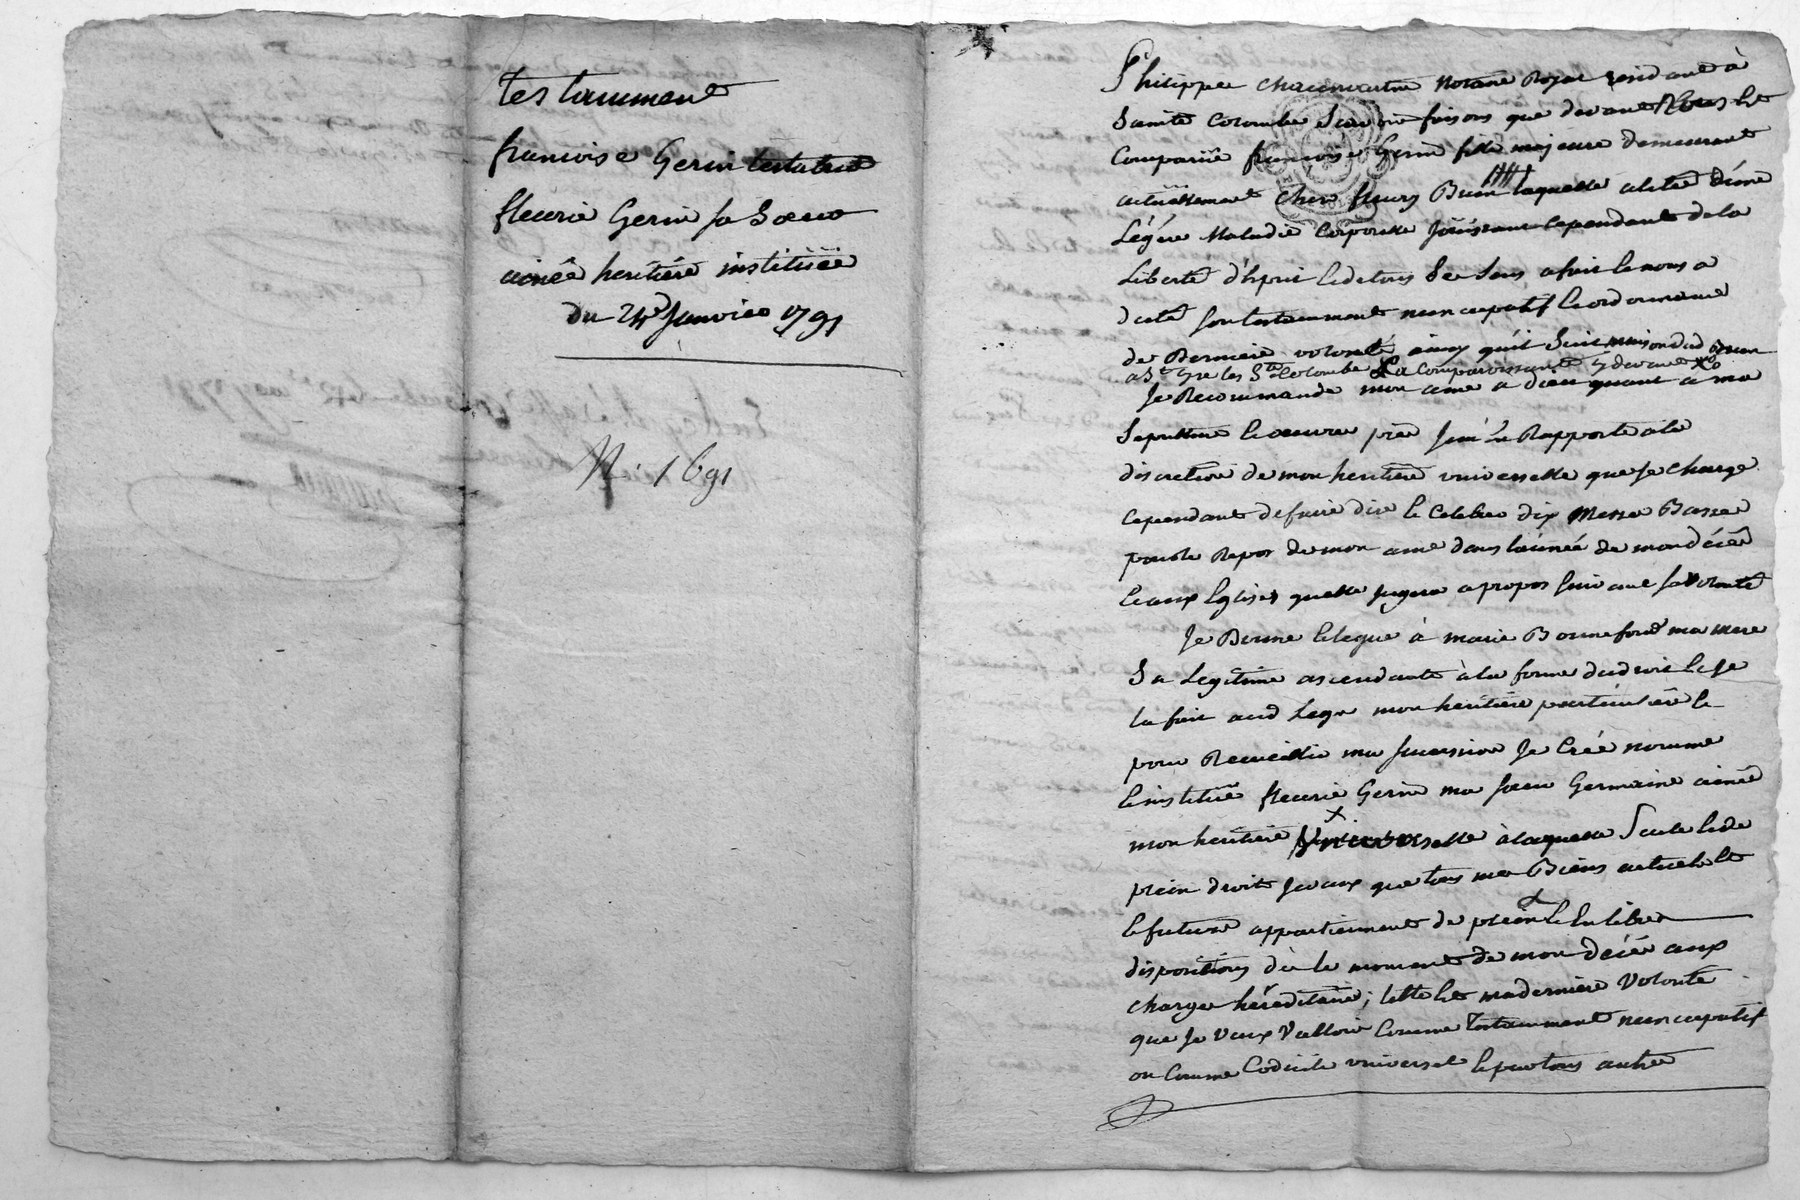 testament
francoise Gerin testatrice
fleurie Gerin sa Soeur
ainée heritiére instituée
du 24e Janvier 1791
N. 1691
Philippe notaire Royal residant à
Sainte Colombe Scavoir faisons que devant Nous Est
Comparüe francoise Gerin fille majeure demeurant
actuellement chez fleury Brun laquelle alitée d'une
Légére Maladie Corporelle Joüissant cependant de la
Liberté d'Esprit Et de tous Ses Sens a fait Et nous a
dicté son testament nuncupatif Et ordonnance
de Derniere volonté ainsy qu'il Suit maison dud Brun
a St Cyre les Ste Colombe La Comparoissante
Je Recommande mon ame a dieu quant a ma
Sepulture Et oeuvres pies Je m'en Rapporte a la
discretion de mon heritiere universelle que Je charge
cependant de faire dire Et Celebrer dix Messes Basses
pour le Repos de mon ame dans l'année de mon décés
Et aux Eglises quelle Jugera a propos suivant sa volonté
Je Donne Et legue à marie Bonnefond ma mere
Sa Legitime ascendante à la forme du droit Et Je
la fais aud Legs mon heritiére particuliére Et
pour Recueillir ma succession Je Créé nomme
Et institüe fleurie Gerin ma soeur Germaine ainée
mon heritiere Universelle à laquelle Seule Et de
plein droit Je veux que tous mes Biens actuels Et
Et futurs appartiennent de plein Et En libre
dispositions dès le moment de mon décés aux
charges héréditaires; telle Est ma derniére Volonté
que Je Veux Valloir Comme testament nuncupatif
ou Comme Codicile universel Et par tous autre